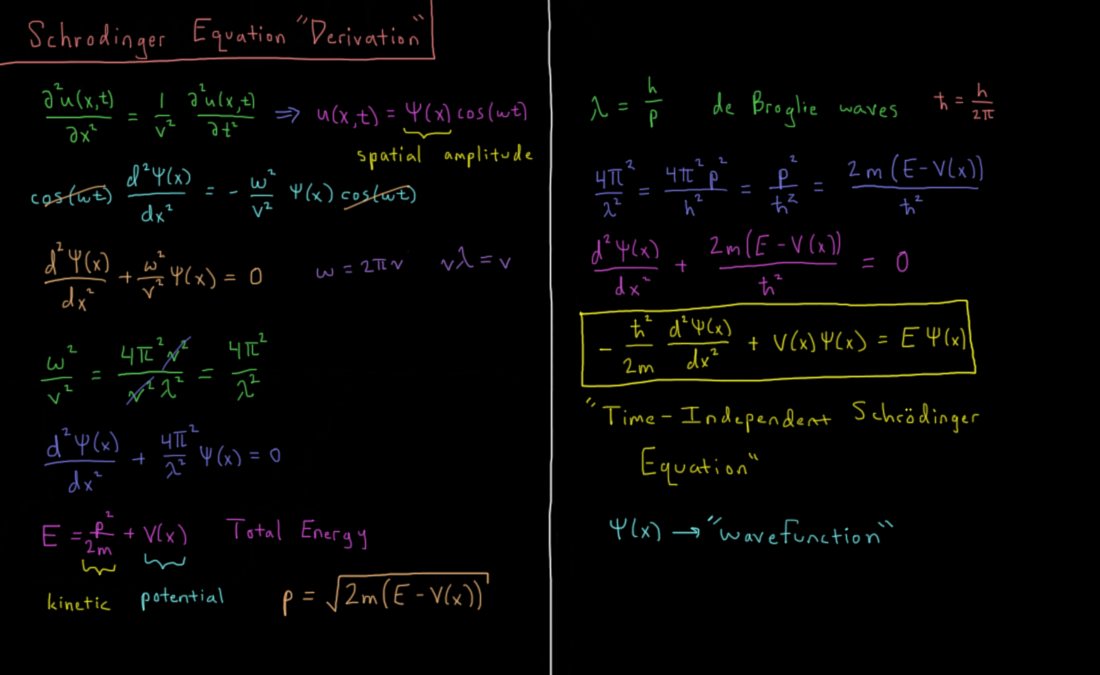 Schrodinger Equation "Derivation"
∂²u(x,t)/∂x² = 1/v² ∂²u(x,t)/∂t² ⇒ u(x,t) = Ψ(x) cos(ωt)
spatial amplitude
cos(ωt) d²Ψ(x)/dx² = - ω²/v² Ψ(x) cos(ωt)
d²Ψ(x)/dx² + ω²/v² Ψ(x) = 0 ω = 2πν νλ = v
ω²/v² = 4π²ν²/ν²λ² = 4π²/λ²
d²Ψ(x)/dx² + 4π²/λ² Ψ(x) = 0
E = p²/2m + V(x) Total Energy
kinetic potential p = √(2m(E - V(x)))
λ = h/p de Broglie waves ħ = h/2π
4π²/λ² = 4π²p²/h² = p²/ħ² = 2m(E-V(x))/ħ²
d²Ψ(x)/dx² + 2m(E-V(x))/ħ² = 0
- ħ²/2m d²Ψ(x)/dx² + V(x)Ψ(x) = EΨ(x)
"Time-Independent Schrödinger
Equation"
Ψ(x) → "wavefunction"